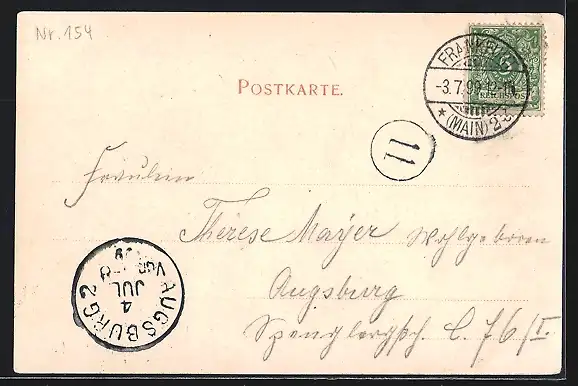 Nr. 154
FRANKFURT
-3.7.99.12-1N.
* (MAIN) 2
REICHSPOST
POSTKARTE.
11
Fräulein
Therese Mayer Wohlgeboren
Augsburg
AUGSBURG 2
4 JUL
VOR